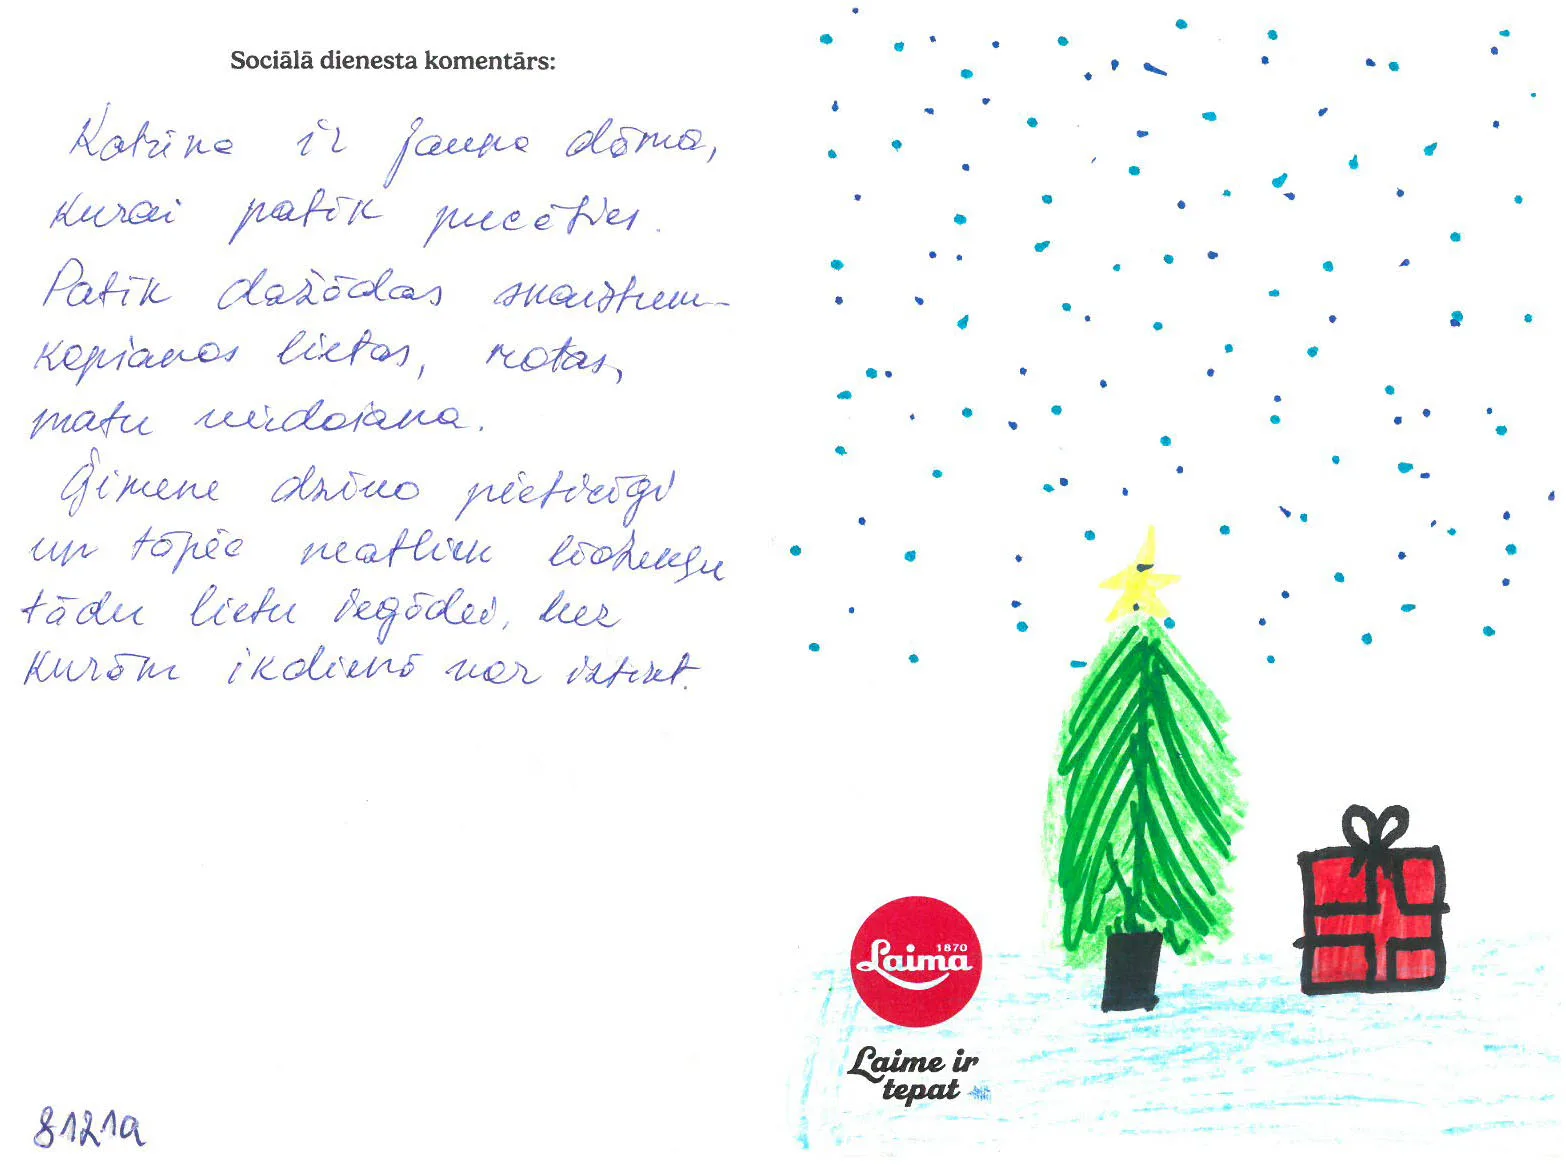 Sociālā dienesta komentārs:
Katrīna ir jauna dāma,
kurai patīk pucēties.
Patīk dažādas skaistum-
kopšanas lietas, rotas,
matu veidošana.
Ģimene dzīvo pieticīgi
un tāpēc neatliek līdzekļu
tādu lietu iegādei, bez
kurām ikdienā var iztikt.
8121a
Laima 1870
Laime ir
tepat